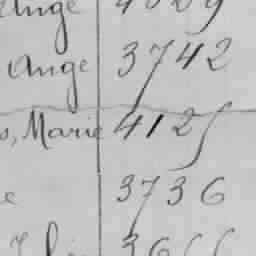 Ange 4029
Ange 3742
s, Marie 4125
e 3736